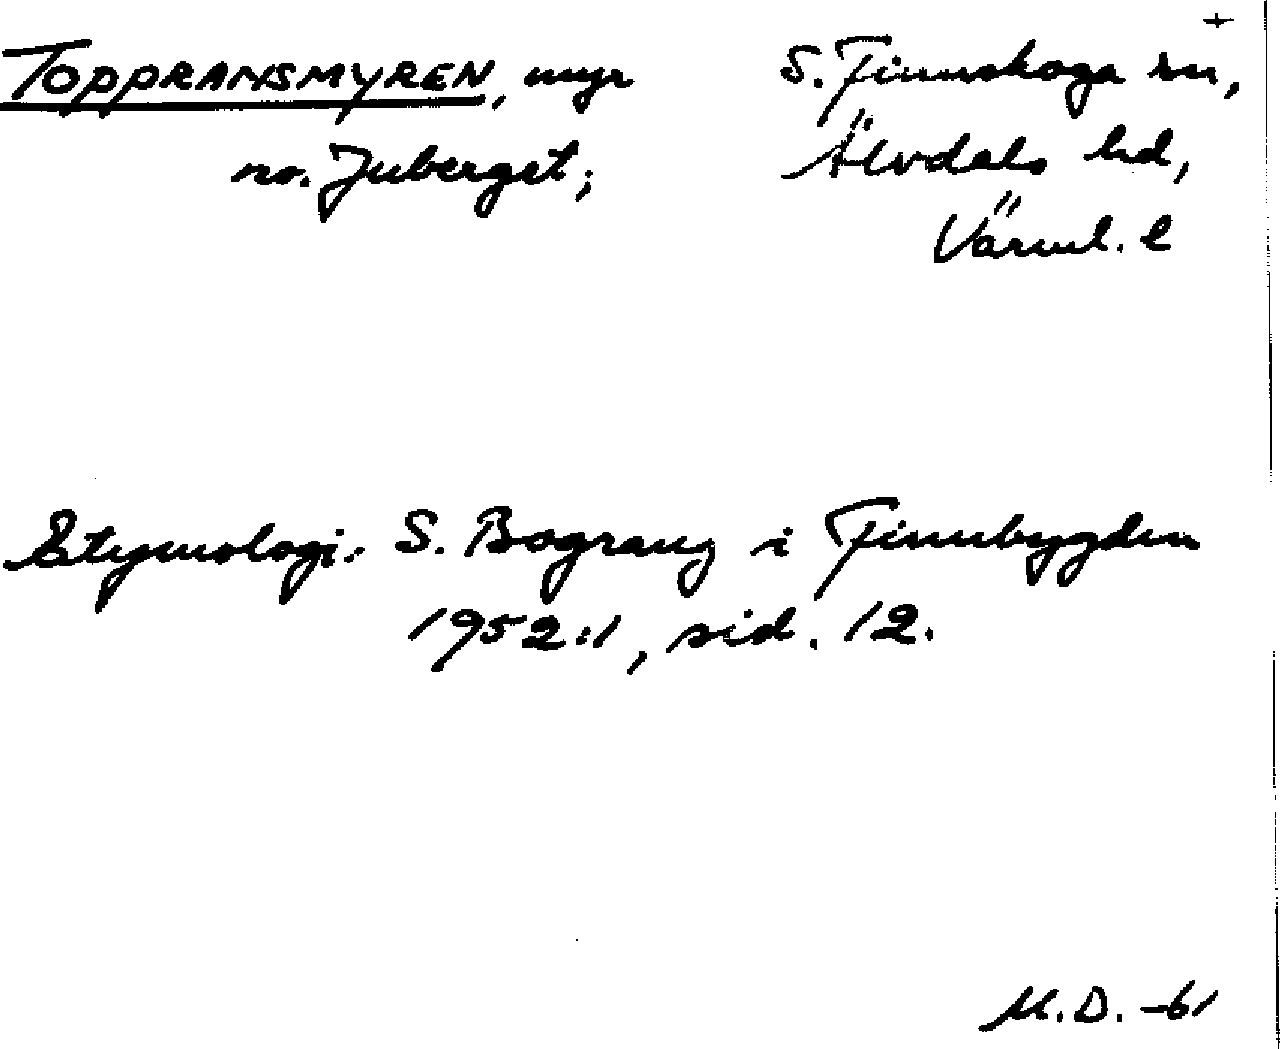 +
TOPPRANSMYREN, myr S. Finnskoga sn,
no. Juberget; Älvdals hd,
Värml. l
Etymologi: S. Bograng i Finnbygden
1952:1, sid. 12.
M.D. -61